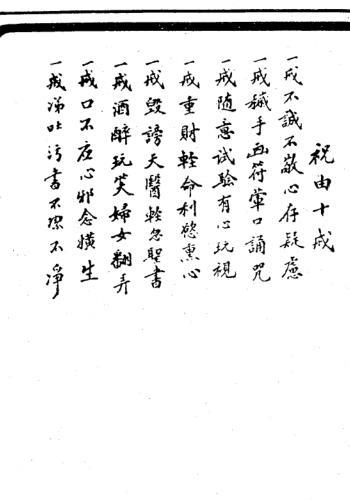 祝由十戒
一戒不誠不敬心存疑慮
一戒穢手画符葷口誦咒
一戒随意試驗有心玩視
一戒重財輕命利慾熏心
一戒毀謗天醫輕忽聖書
一戒酒醉玩笑婦女翻弄
一戒口不应心邪念横生
一戒涕吐污書不潔不净